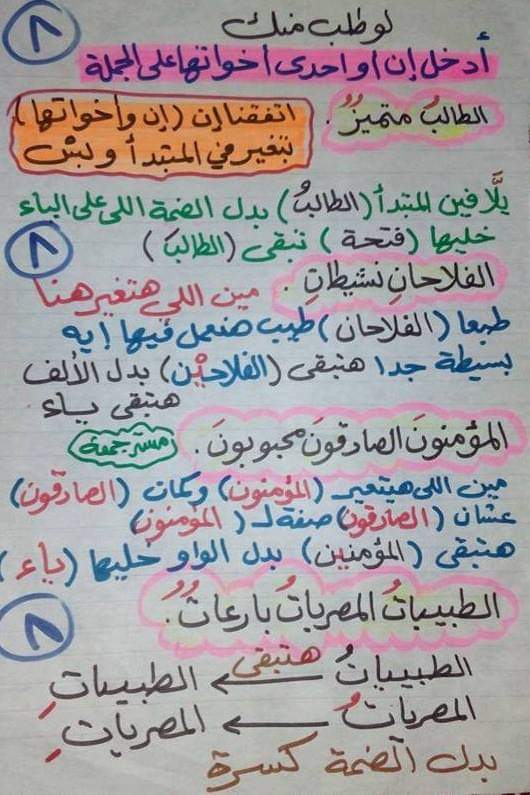 ٨
لو طلب منك
أدخل إن أو احدى أخواتها على الجملة
الطالبُ متميزٌ .
اتفقنا إن (إن وأخواتها)
بتغير في المبتدأ وبس
يلَّا فين المبتدأ (الطالبُ) بدل الضمة اللى على الباء
خليها (فتحة) تبقى (الطالبَ)
٨
الفلاحانِ نشيطانِ .
مين اللي هتغير هنا
طبعا (الفلاحان) طيب هنعمل فيها إيه
بسيطة جدا هتبقى (الفلاحيْن) بدل الألف
هتبقى ياء .
المؤمنونَ الصادقونَ محبوبونَ .
مستر جمعة
مين اللى هيتغير (المؤمنون) وكمان (الصادقون)
عشان (الصادقون) صفة لـ (المؤمنون)
هتبقى (المؤمنين) بدل الواو خليها (ياء)
الطبيباتُ المصرياتُ بارعاتٌ .
٨
الطبيباتُ هتبقى ← الطبيباتِ
المصرياتُ ← المصرياتِ
بدل الضمة كسرة